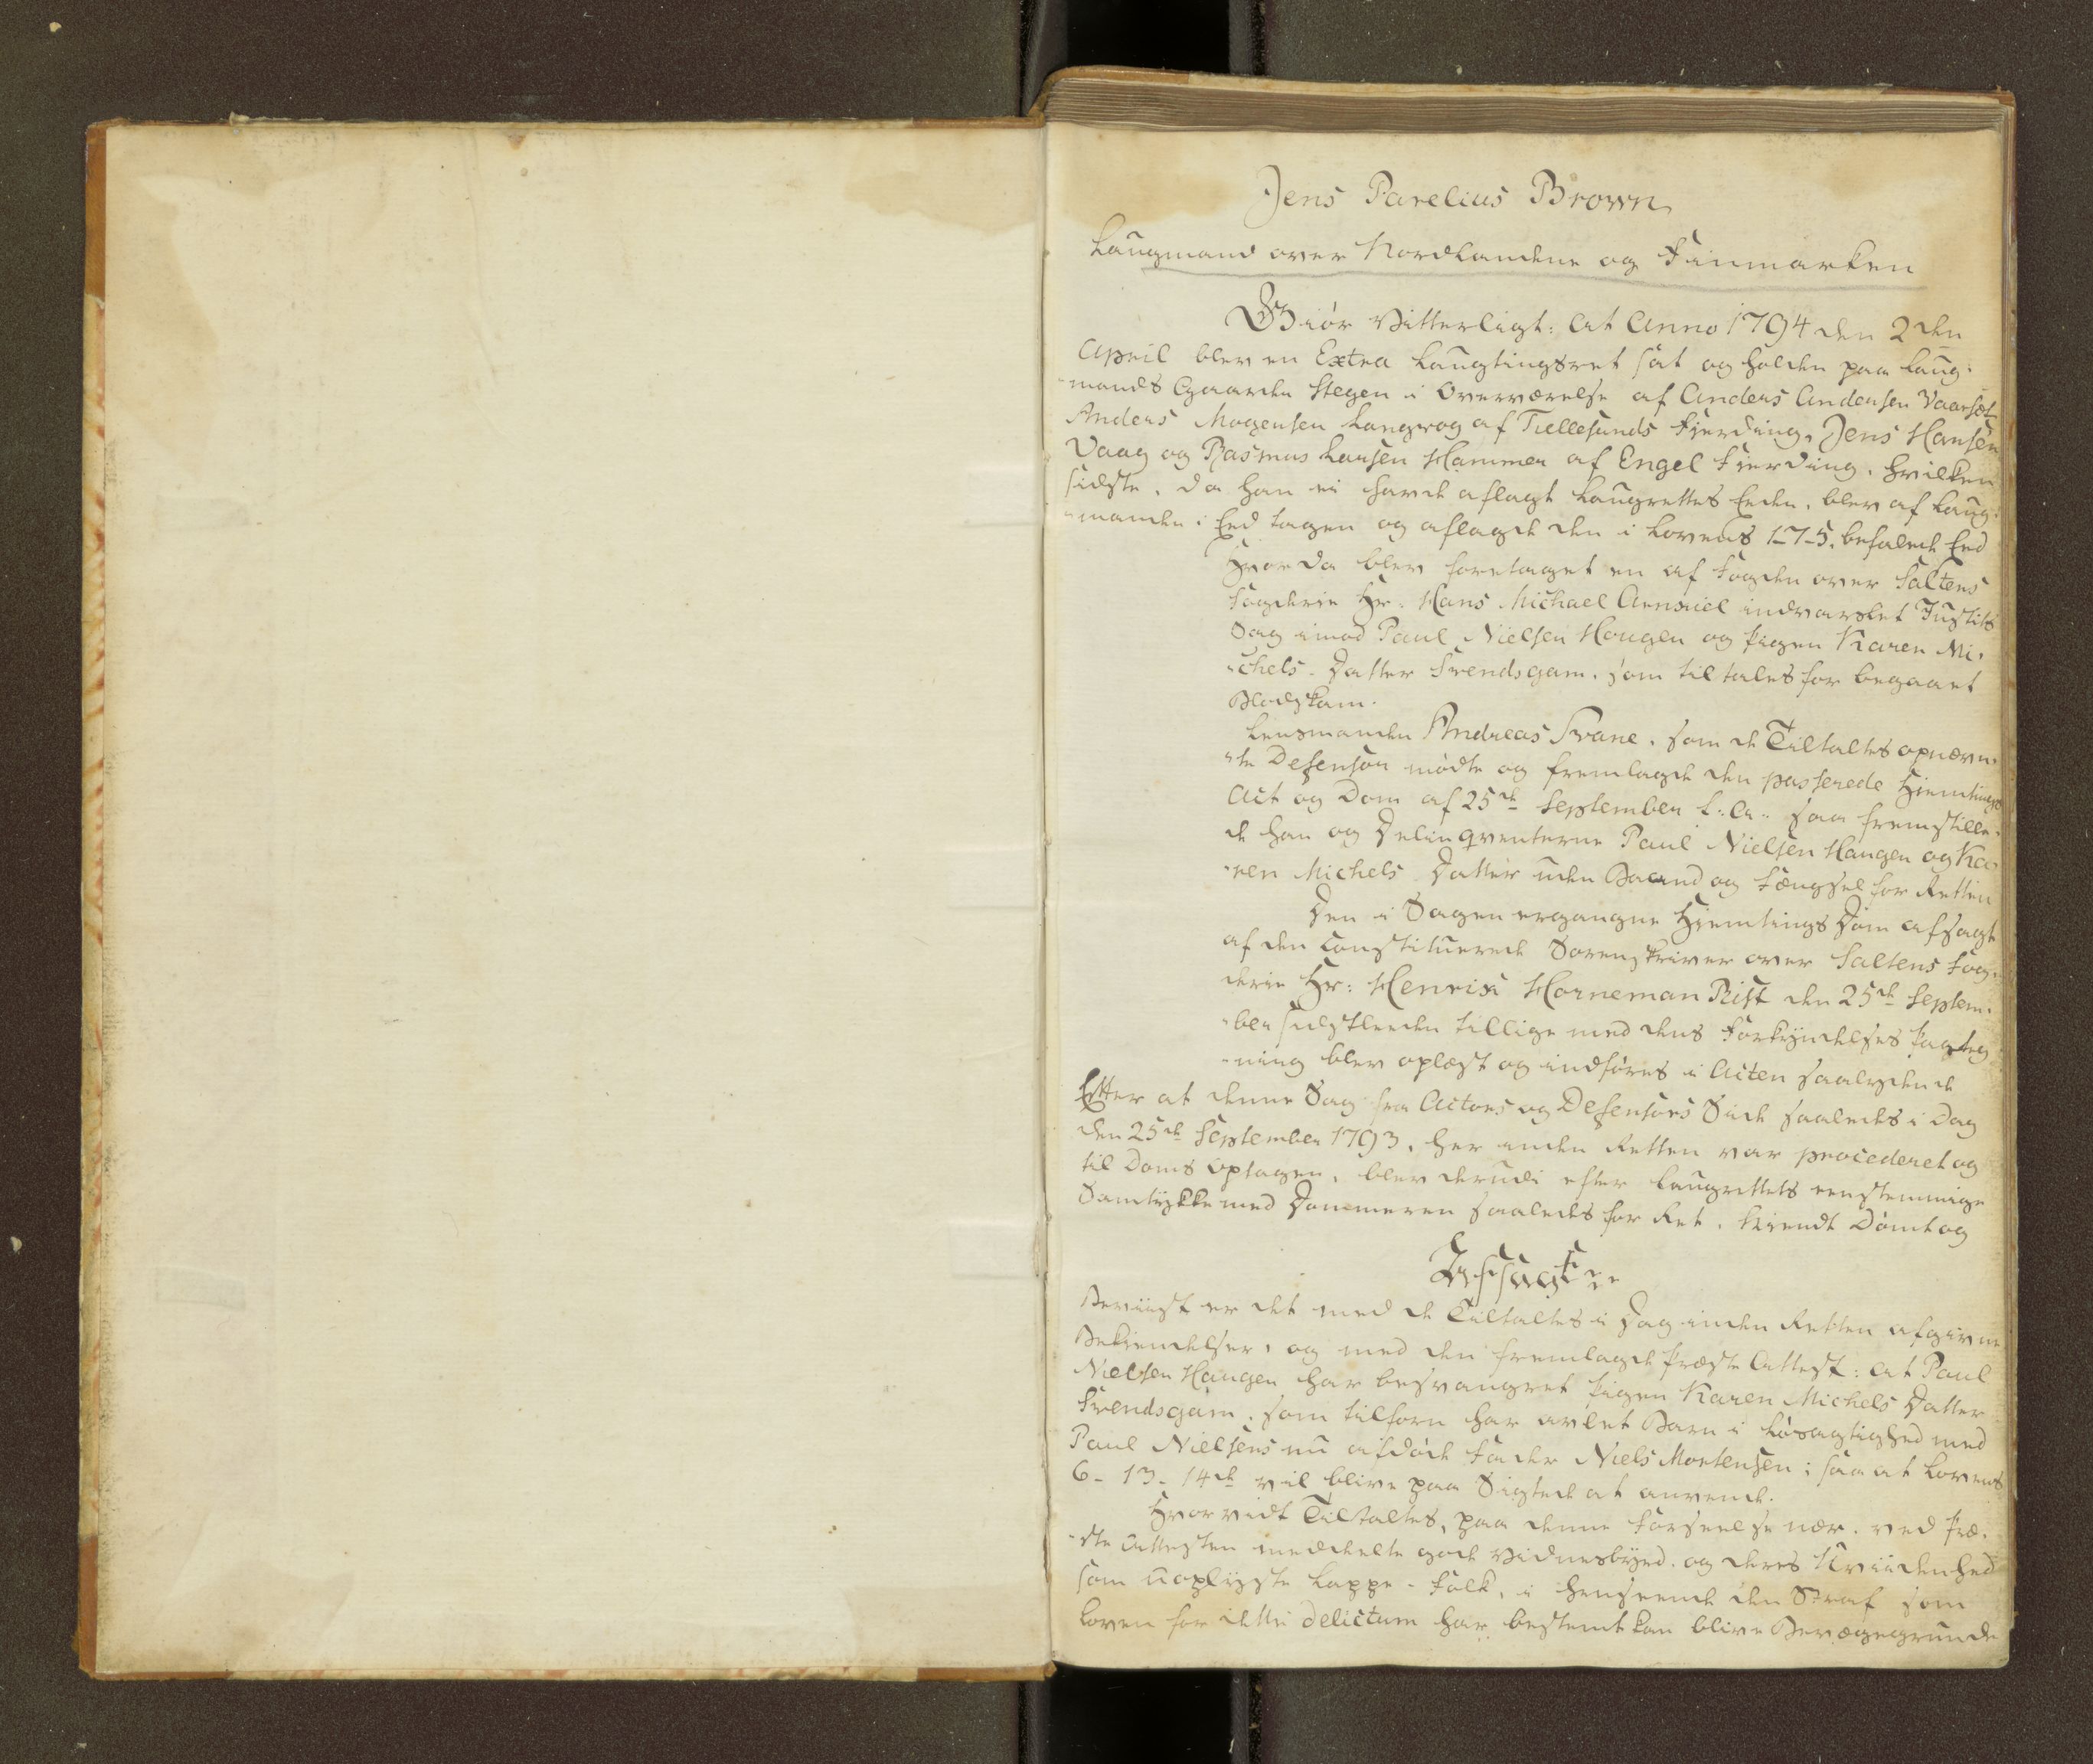 Jens Parelius Brown
Laugmand over Nordlandene og Finmarken
Giør Vitterligt: at Anno 1794 den 2den
April blev en Extra Laugtingsret sat og holden paa Laug-
mands Gaarden Stegen i Overværelse af Anders Andersen Vaarset
Anders Mogensen Langvog af Tiellesunds Fierding, Jens Hansen
Vaag og Rasmus Larsen Hammer af Engel Fierding, hvilken
sidste, da han ei havde aflagt Laugrettes Eeden, blev af Laug-
manden i Eed tagen og aflagde den i Lovens 1-7-5. befalede Eed
Hvor da blev foretaget en af Fogden over Saltens
Fogderie Hr. Hans Michael indvarslet Justits
Sag imod Paul Nielsen Hougen og Pigen Karen Mi-
chels Datter Svendsgam, som tiltales for begaaet
Blodskam.
Lensmanden Andreas Svane, som de Tiltaltes opnævn-
te Defensor mødte og fremlagde den passerede Hiemtings
Act og Dom af 25de September f: a: saa fremstille-
de han og Delinqventerne Paul Nielsen Haugen og Ka-
ren Michels Datter uden Baand og Fængsel for Retten
Den i Sagen ergangne Hiemtings Dom afsagt
af den Constituerede Sorenskriver over Saltens Fog-
derie Hr: Henrich Horneman Rist den 25de Septem-
ber sidstleeden tillige med dens Forkyndelses Paateg-
ning blev oplæst og indføres i Acten saalydende
Efter at denne Sag fra Actors og Defensors Side saaledes i Dag
den 25de September 1793, her inden Retten var procederet og
til Doms optagen, blev derudi efter Laugrettets eenstemmige
Samtykke med Dommeren saaledes for Ret, kiendt Dømt og
Afsagt
Beviist er det med de Tiltaltes i Dag inden Retten afgivne
Bekiendelser, og med den fremlagde Præste Attest: at Paul
Nielsen Haugen har besvangret Pigen Karen Michels Datter
Svendsgam, som tilforn har avlet Barn i Løsagtighed med
Paul Nielsens nu afdøde Fader Niels Mortensen; saa at Lovens
6-13-14de vil blive paa Sigtede at anvende.
Hvorvidt Tiltaltes, paa denne Forseelse nær, ved Præ-
ste Attesten meddeelte gode Vidnesbyrd, og deres Uvidenhed
som uoplyste Lappe-Folk, i henseende den Straf som
Loven for dette delictum har bestemt kan blive Bevægegrunde